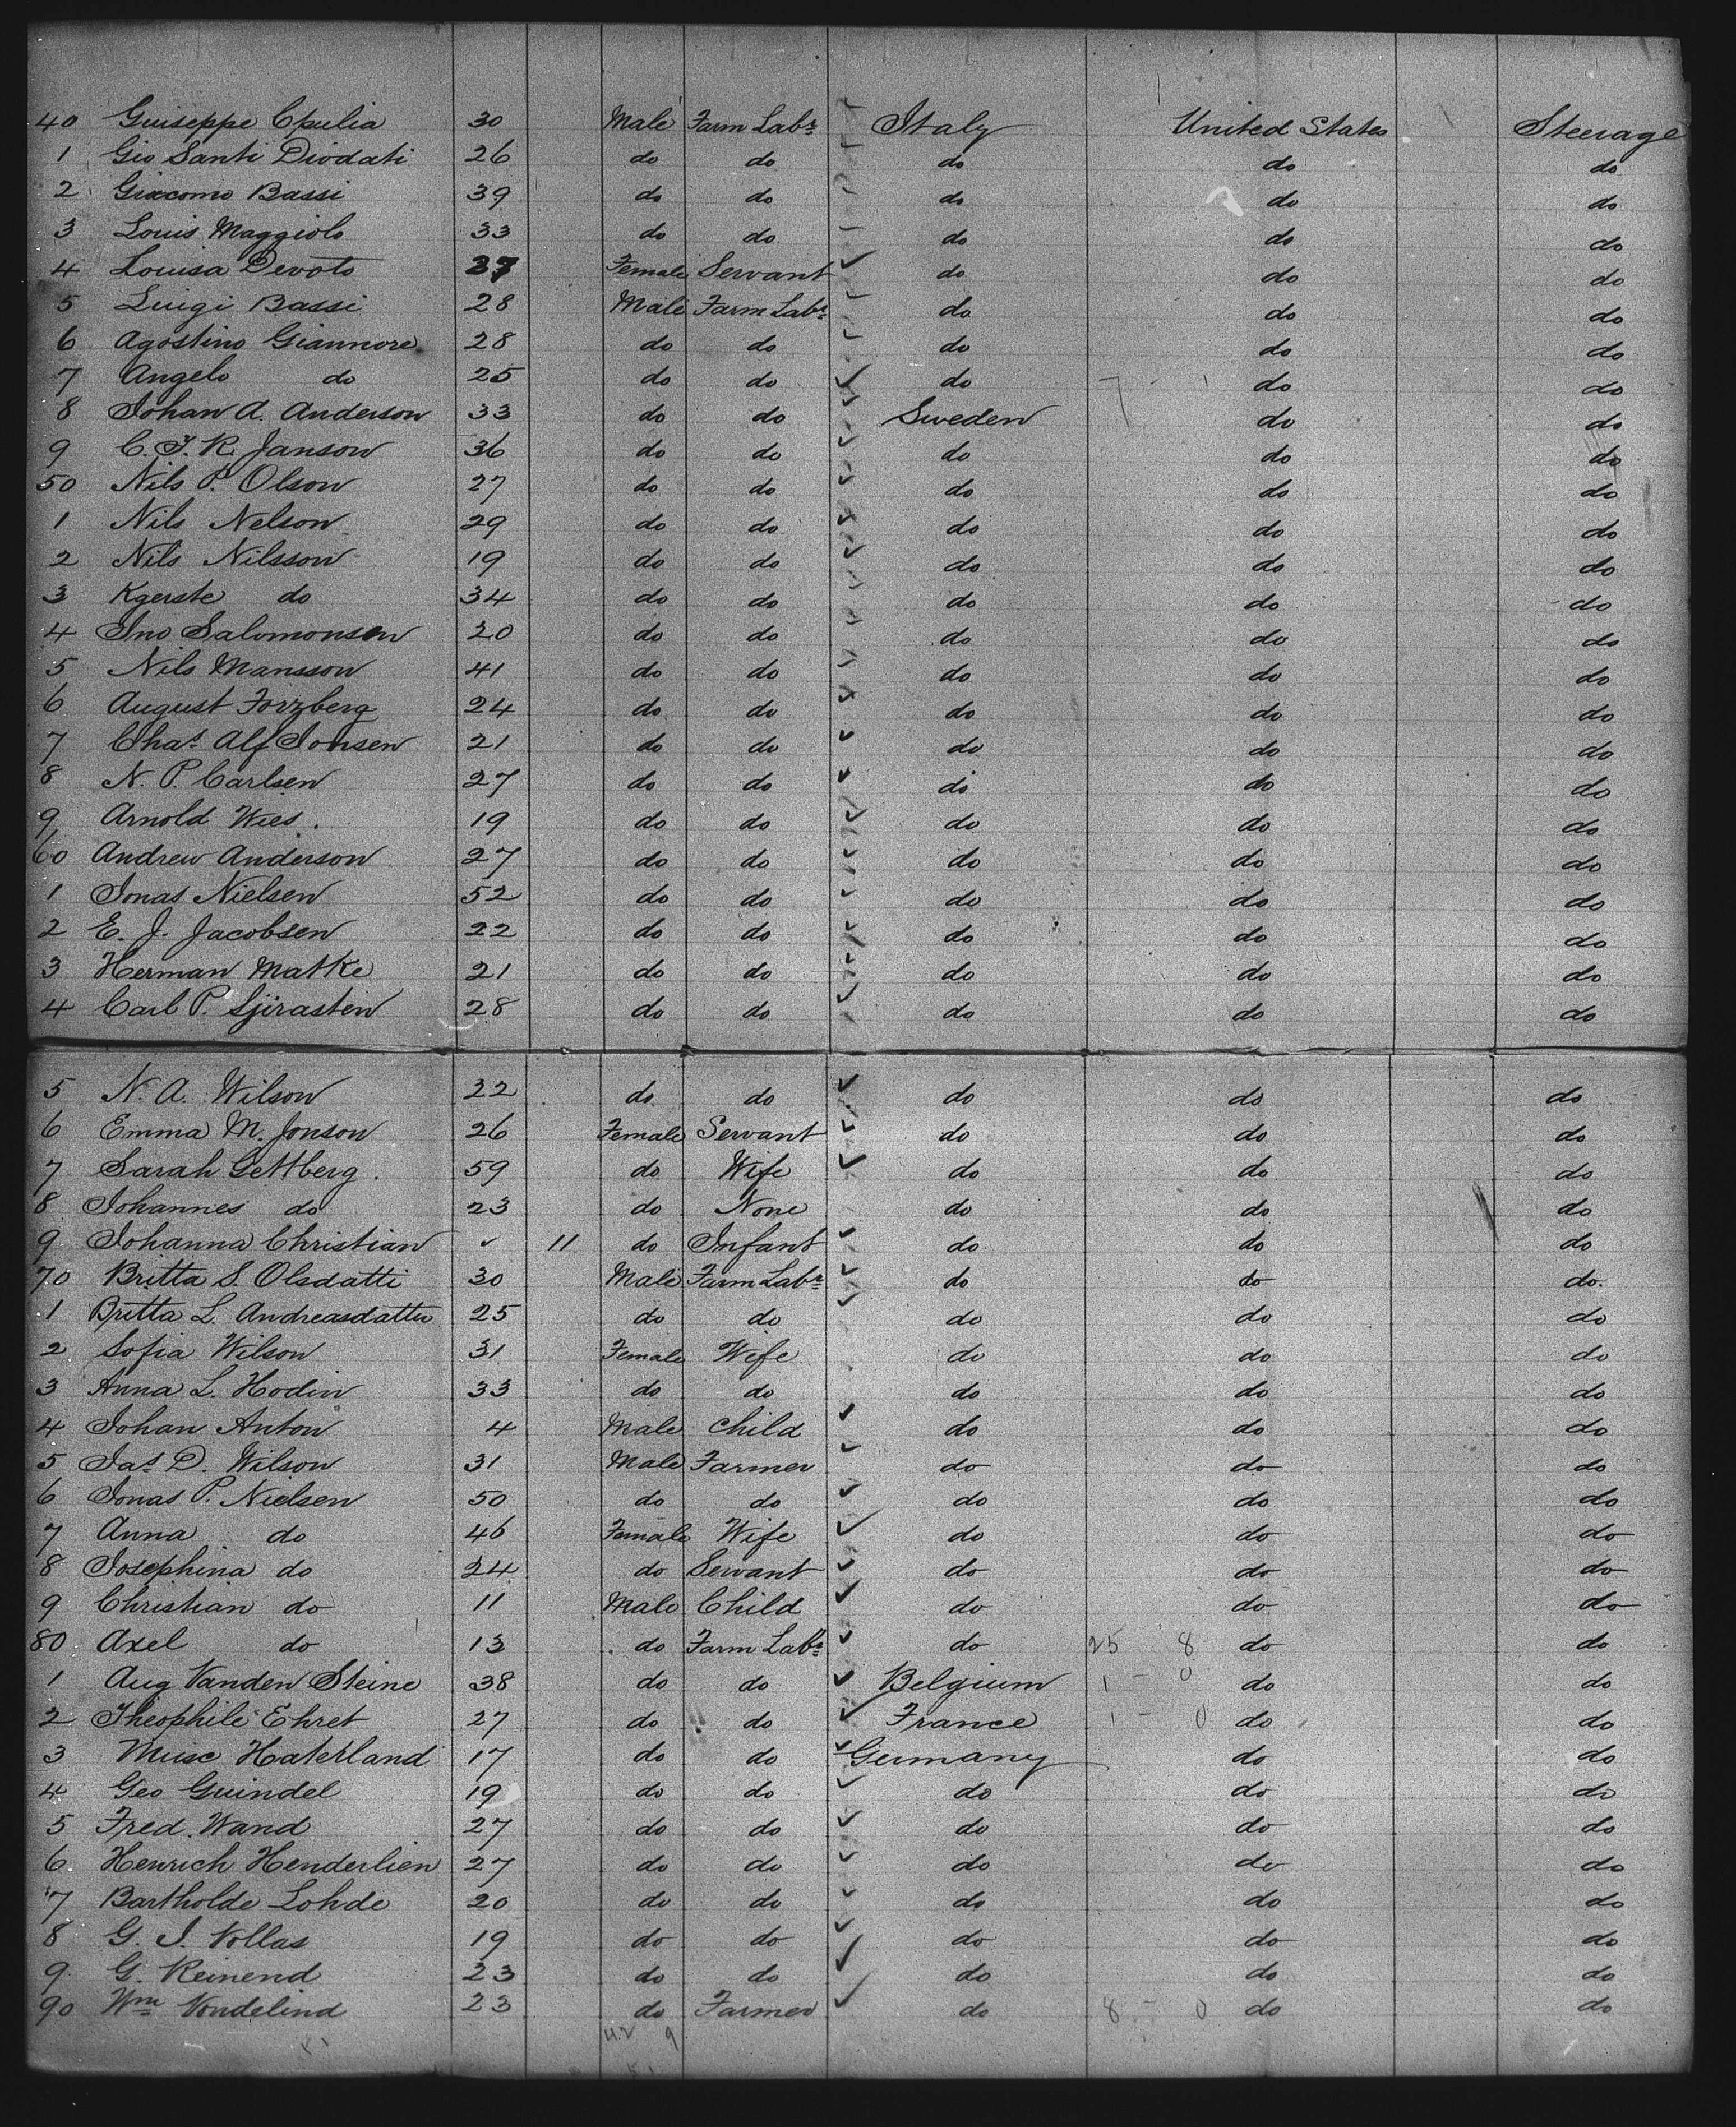 40 Guiseppe Cpulia 30 Male Farm Labr Italy United States Steerage
1 Gio Santi Diodati 26 do do do do do
2 Giacomo Bassi 39 do do do do do
3 Louis Maggiolo 33 do do do do do
4 Louisa Devoto 37 Female Servant do do do
5 Luigi Bassi 28 Male Farm Labr do do do
6 Agostino Giannore 28 do do do do do
7 Angelo do 25 do do do 7 - 1 do do
8 Johan A. Anderson 33 do do Sweden do do
9 C. F. R. Janson 36 do do do do do
50 Nils P. Olson 27 do do do do do
1 Nils Nelson 29 do do do do do
2 Nils Nilsson 19 do do do do do
3 Kgerste do 34 do do do do do
4 Jno Salomonsen 20 do do do do do
5 Nils Mansson 41 do do do do do
6 August Forzberg 24 do do do do do
7 Chas Alf Jonsen 21 do do do do do
8 N. P. Carlsen 27 do do do do do
9 Arnold Wies. 19 do do do do do
60 Andrew Anderson 27 do do do do do
1 Jonas Nielsen 52 do do do do do
2 E. J. Jacobsen 22 do do do do do
3 Herman Matke 21 do do do do do
4 Carl P. Sjirasten 28 do do do do do
5 N. A. Wilson 22 do do do do do
6 Emma M. Jonson 26 Female Servant do do do
7 Sarah Gettberg. 59 do Wife do do do
8 Johannes do 23 do None do do do
9 Johanna Christian 11 do Infant do do do
70 Britta S. Olsdatti 30 Male Farm Labr do do do.
1 Britta L. Andreasdatter 25 do do do do do
2 Sofia Wilson 31 Female Wife do do do
3 Anna L. Hodin 33 do do do do do
4 Johan Anton 4 Male Child do do do
5 Jas D. Wilson 31 Male Farmer do do do
6 Jonas P. Nielsen 50 do do do do do
7 Anna do 46 Female Wife do do do
8 Josephina do 24 do Servant do do do
9 Christian do 11 Male Child do do do
80 Axel do 13 do Farm Labr do 25 8 do do
1 Aug Vanden Steine 38 do do Belgium 1 - 0 do do
2 Theophile Ehret 27 do do France 1 - 0 do do
3 Musc Haterland 17 do do Germany do do
4 Geo Guindel 19 do do do do do
5 Fred. Wand 27 do do do do do
6 Henrich Henderlien 27 do do do do do
7 Bartholde Lohde 20 do do do do do
8 G. J. Vollas 19 do do do do do
9 G. Reinend 23 do do do do do
90 Wm Vondelind 23 do Farmer do 8 - 0 do do
42 9